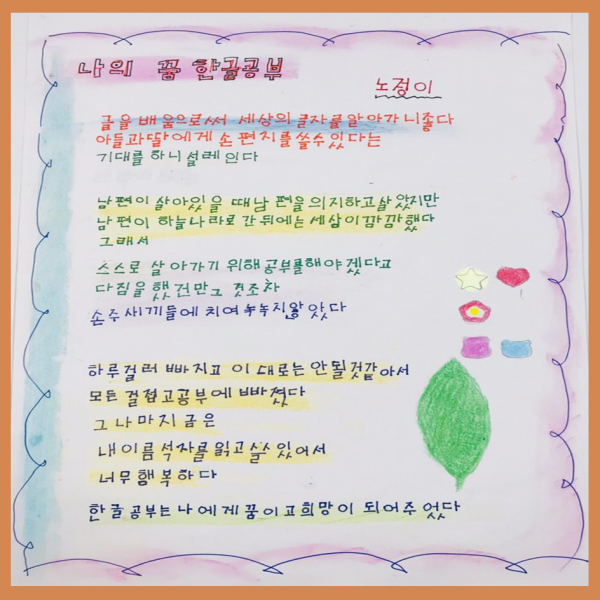 나의 꿈 한글공부
노정이
글을 배움으로써 세상의 글자를 알아가 니좋다
아들과딸에게 손 편지를 쓸수있다는
기대를 하니 설레 인다
남편이 살아있을 때남 편을 의지하고살 았지만
남편이 하늘나라로 간 뒤에는 세상이깜깜했다
그래서
스스로 살 아가기 위해공부를해야 겠다고
다짐을 했 건만그 것조차
손주새끼들에 치여 녹녹지않 았다
하루걸러 빠지고 이 대로는 안될것같 아서
모든 걸접고공부에 빠졌다
그나마지금은
내이름석자를 읽고쓸수 있어서
너무행복하다
한글공부는 나에게꿈이고희망이 되어주 었다